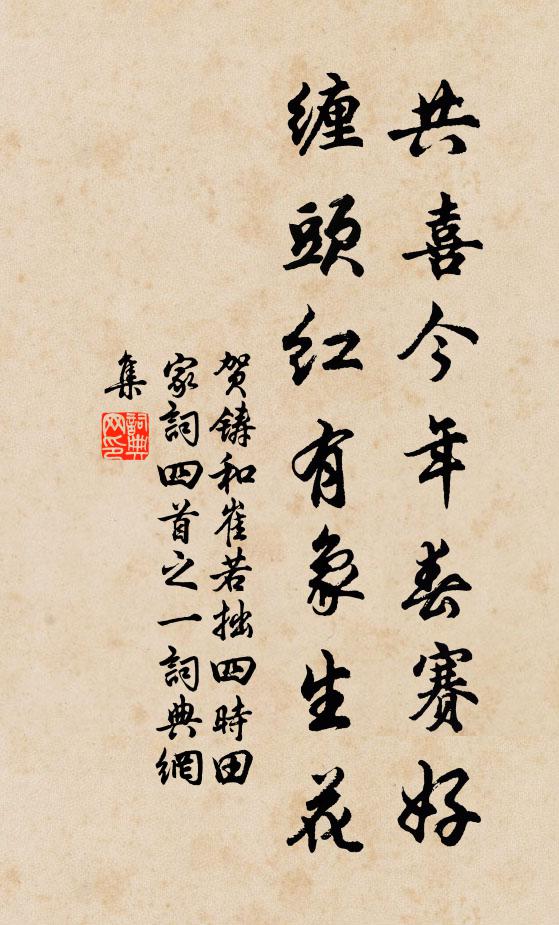 共喜今年春赛好
缠頭红有象生花
贺鑄和崔若拙四時田
家詞四首之一詞典網
集
詞典
网印